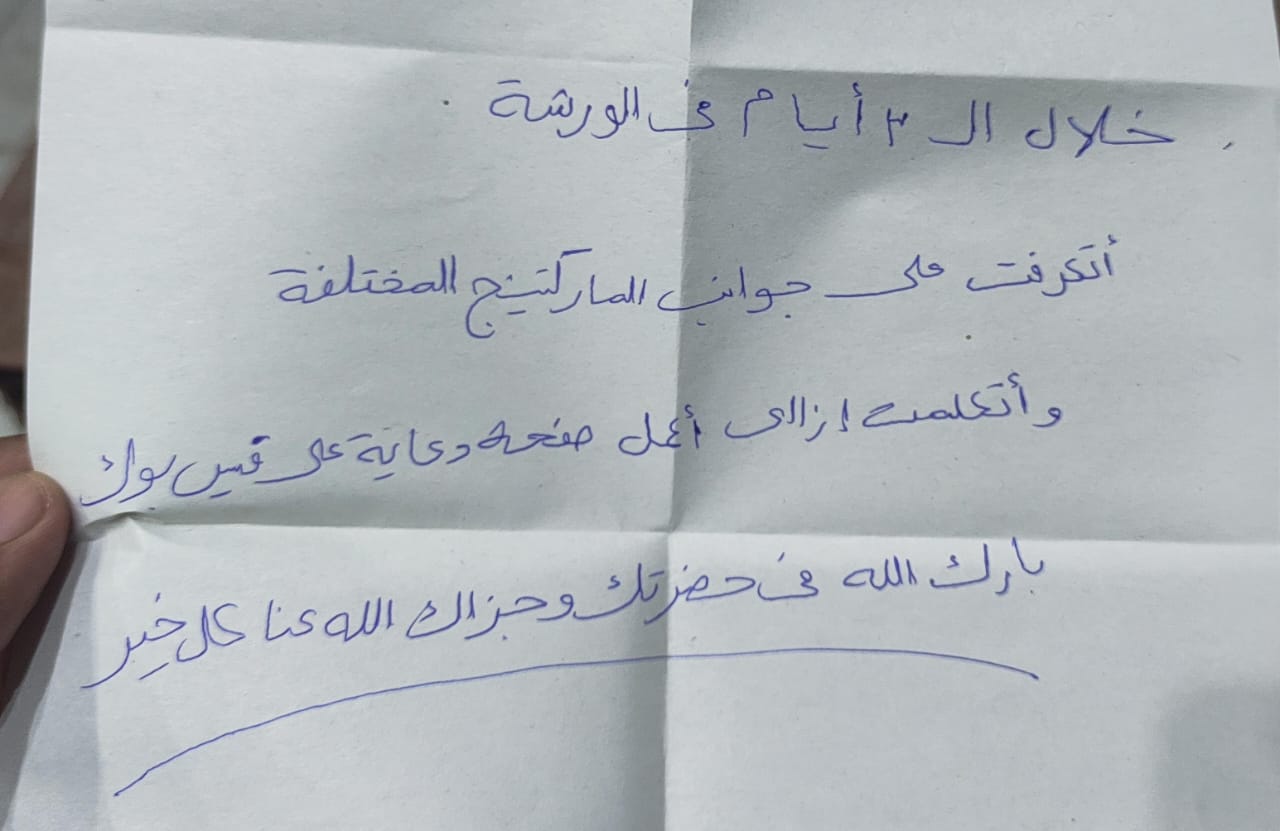 خلال الـ ٣ أيام فى الورشة
أتعرفت على جوانب الماركتينج المختلفة
وأتعلمت إزاى أعمل صفحة دعاية على فيس بوك
بارك الله فى حضرتك وجزاك الله عنا كل خير